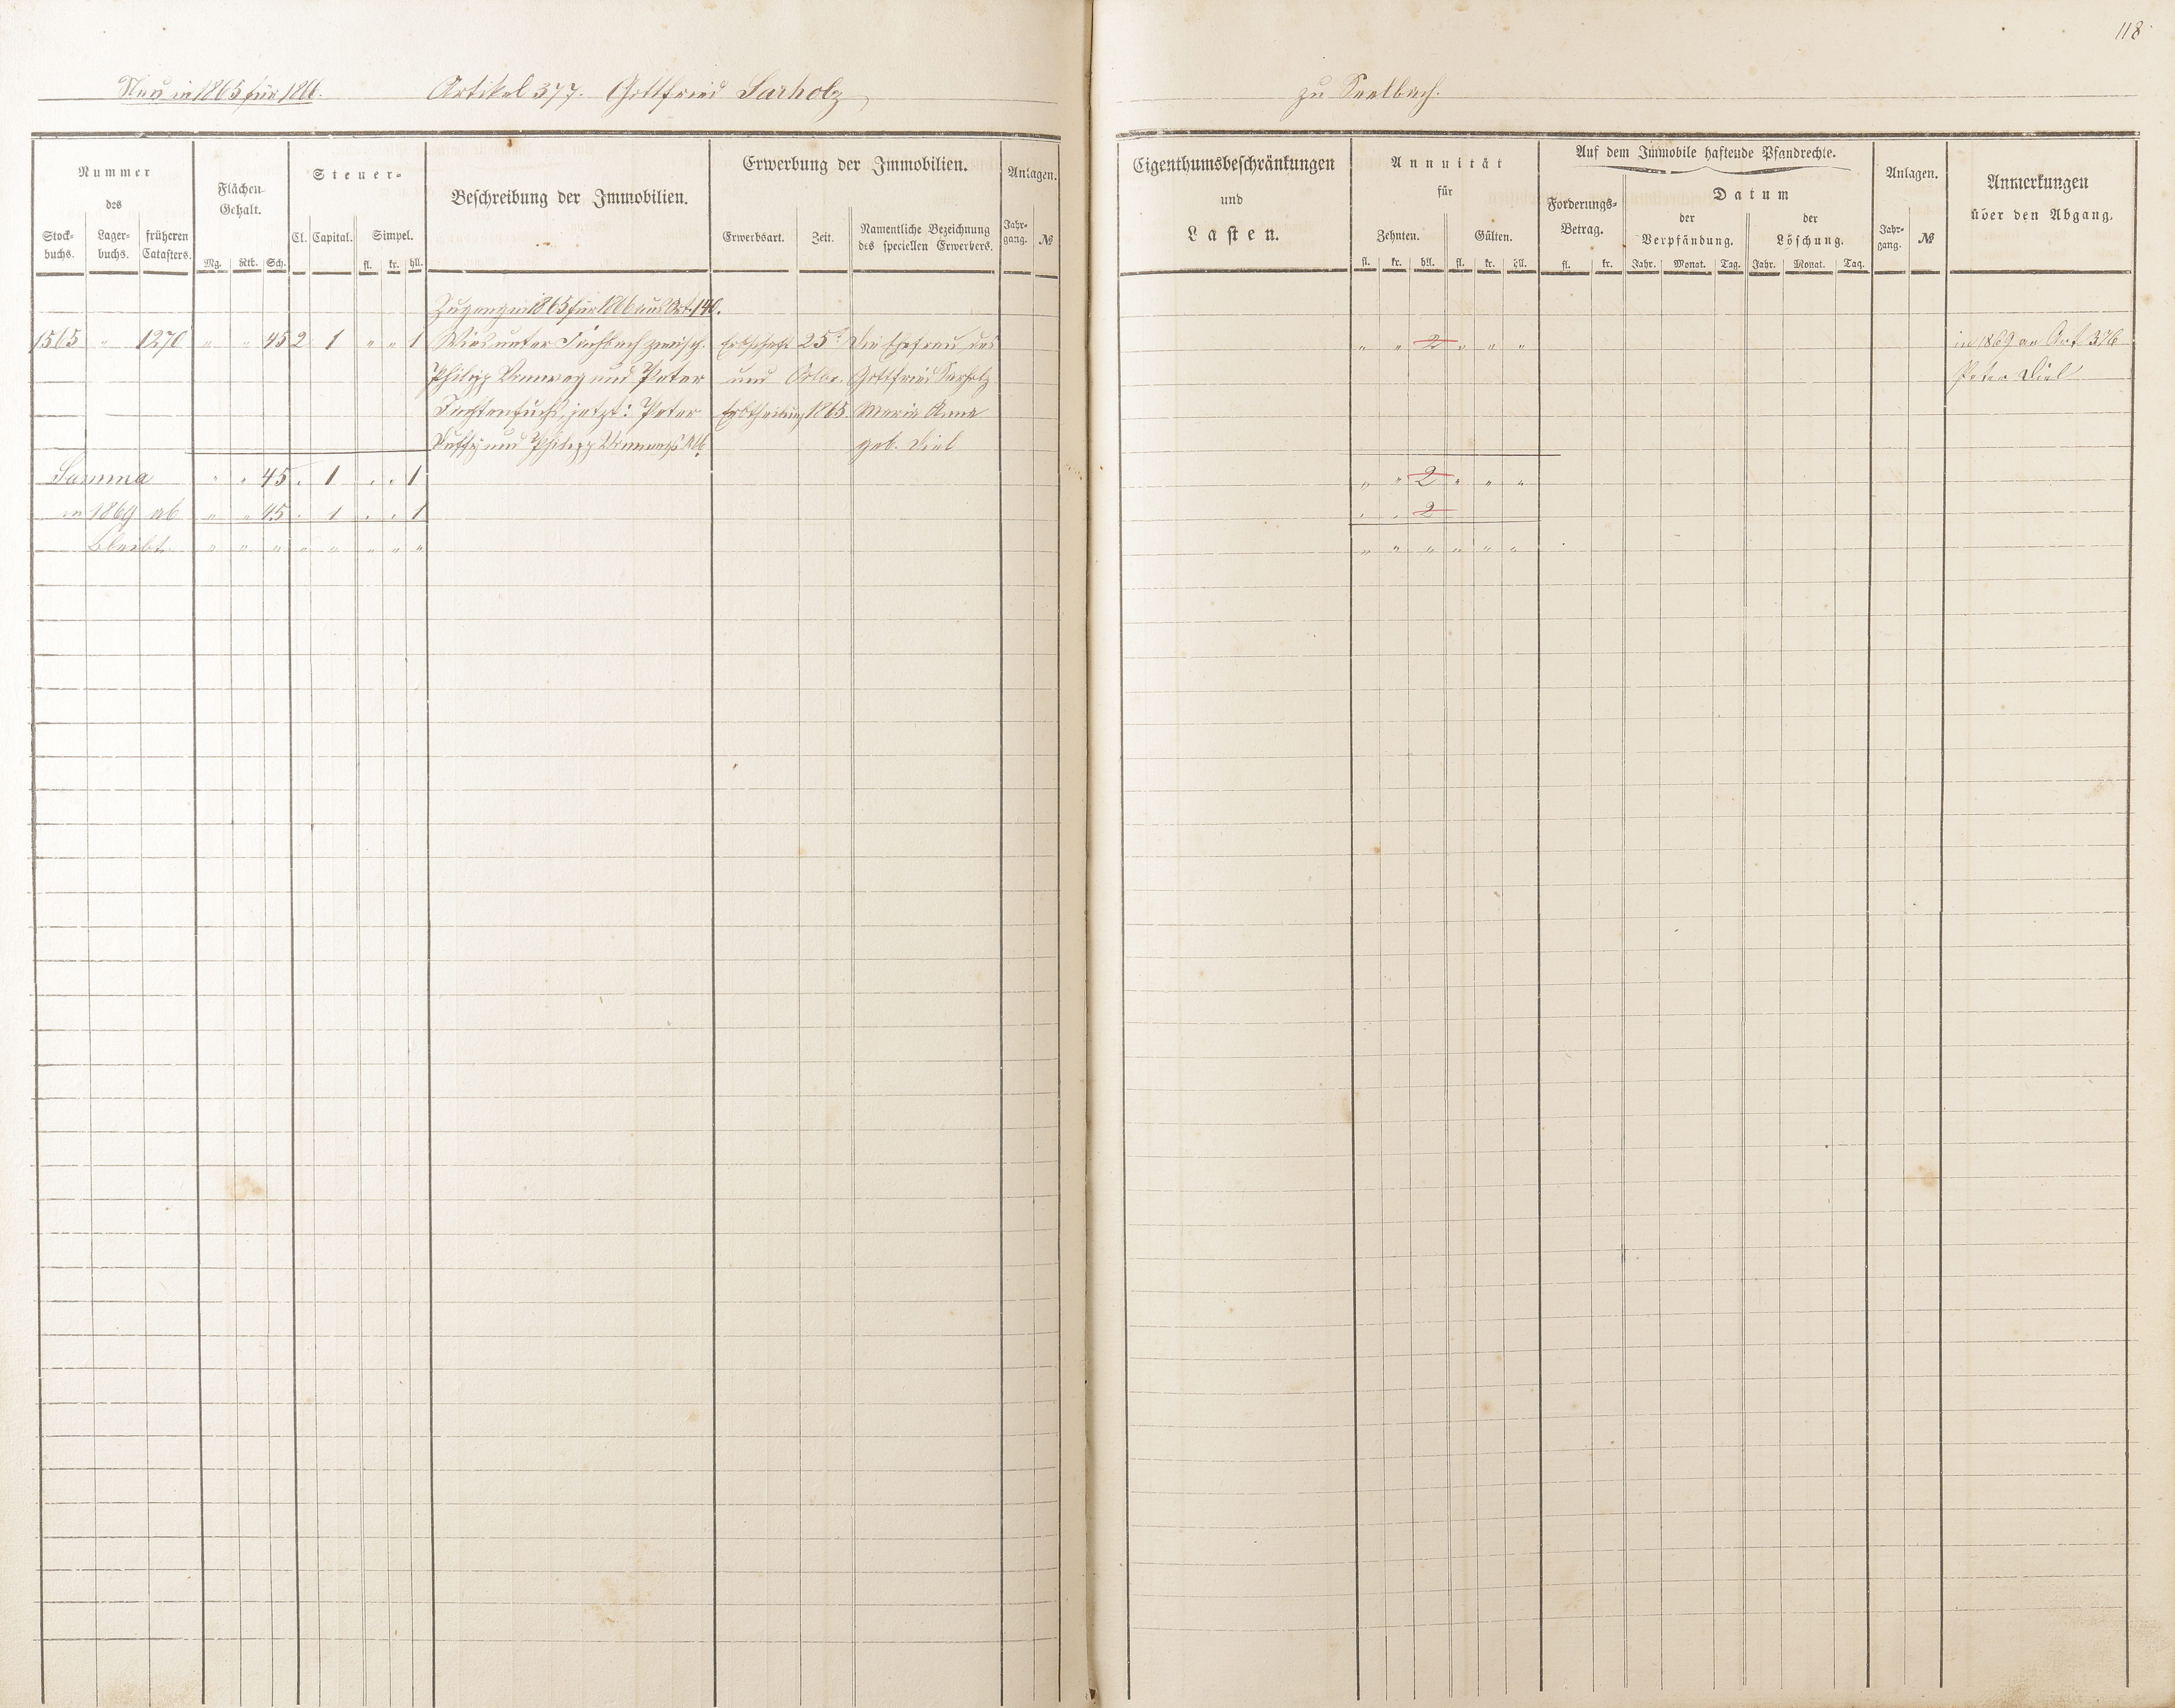 118
Neu in 1865 für 1866. Artikel 377. Gottfried Sarholz zu Seelbach.
Nummer des
Stockbuchs. Lagerbuchs. früheren Catasters.
Flächen-Gehalt.
Mg. Rth. Sch.
Steuer-
Cl. Capital. Simpel.
fl. kr. hll.
Beschreibung der Immobilien.
Erwerbung der Immobilien.
Erwerbsart. Zeit. Namentliche Bezeichnung des speciellen Erwerbers.
Anlagen.
Jahrgang. №
Eigenthumsbeschränkungen
und
Lasten.
Annuität
für
Zehnten. Gülten.
fl. kr. hll. fl. kr. hll.
Auf dem Immobile haftende Pfandrechte.
Forderungs-Betrag.
fl. kr.
Datum
der Verpfändung. der Löschung.
Jahr. Monat. Tag. Jahr. Monat. Tag.
Anlagen.
Jahrgang. №
Anmerkungen
über den Abgang.
Zugang in 1865 für 1866 aus Art. 140.
1565 " 1270 " " 45 2 1 " " 1 Wies unter zwisch. Erbschaft 25t Die Ehefrau des " " 2 " " " in 1869 an Art 376
Philipp und Peter und Octbr. Gottfried Sarholz Peter Diel
jetzt: Peter Erbtheilung 1865. Maria Anna
und Philipp geb. Diel
Summa " " 45 " 1 " " 1 " " 2 " " "
in 1869 ab " " 45 " 1 " " 1 " " 2
bleibt " " " " " " " " " " " " " "